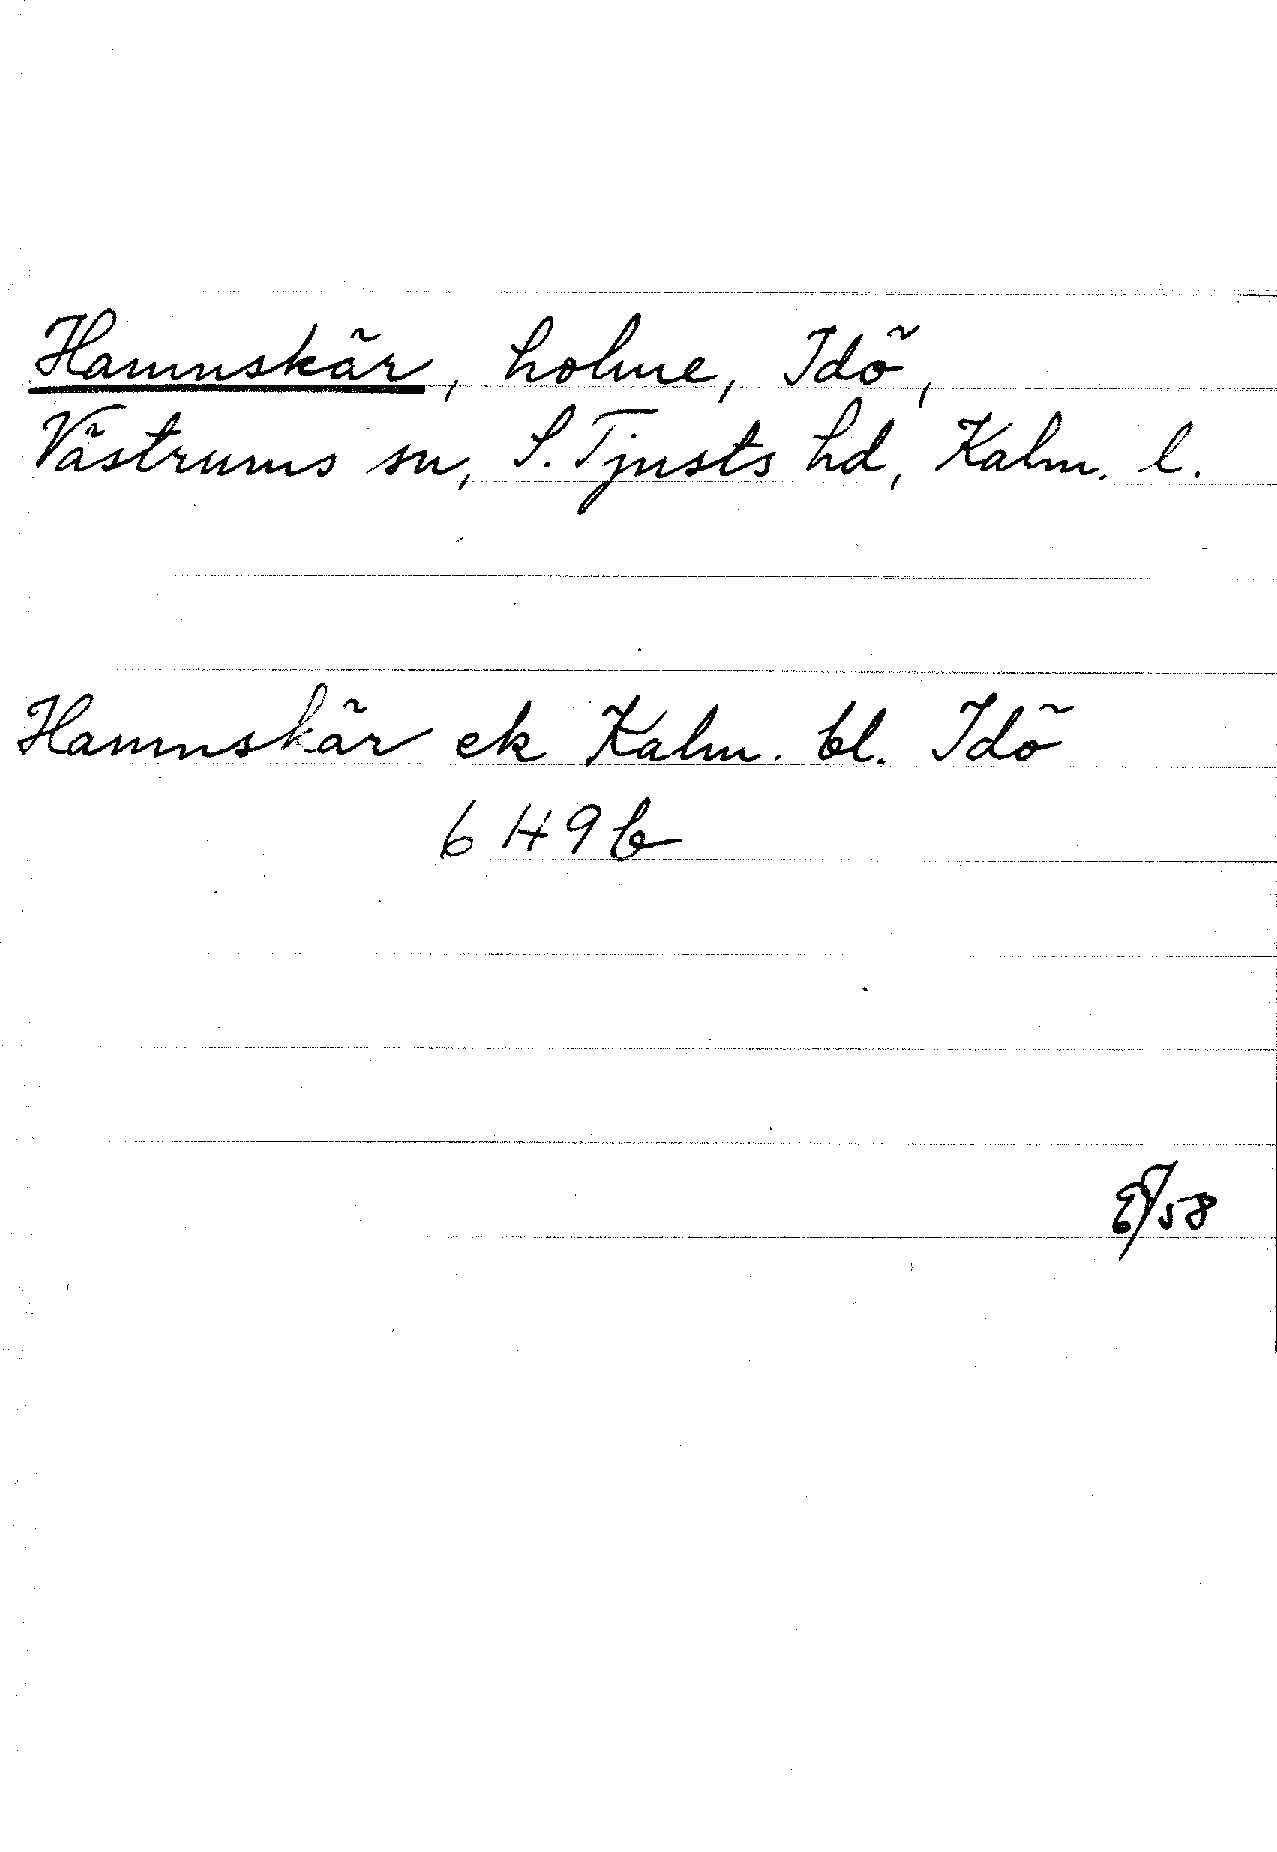 Hamnskär, holme, Idö,
Västrums sn, S. Tjusts hd, Kalm. l.
Hamnskär ek Kalm. bl. Idö
6 H 9 b